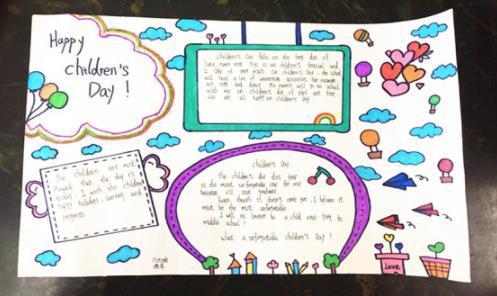 Happy
Children's
Day !
Children's Day falls on the first day of
June every year. This is our children's festival and
I like it very much. On Children's Day, the school
will have a lot of interesting activities, for example
sing, and dancing. My parents will go to school
with me on children's day if they are free
We are all happy on children's day.
The children
that the day is
today with the children
happy holidays, learning and
progress.
children's Day
The children's day this year
is the most unforgettable one for me
because I'll soon graduate.
Even though it doesn't come yet, I believe it
must be the most unforgettable.
I will no longer be a child and go to
middle school !
What a unforgettable children's Day !
Love